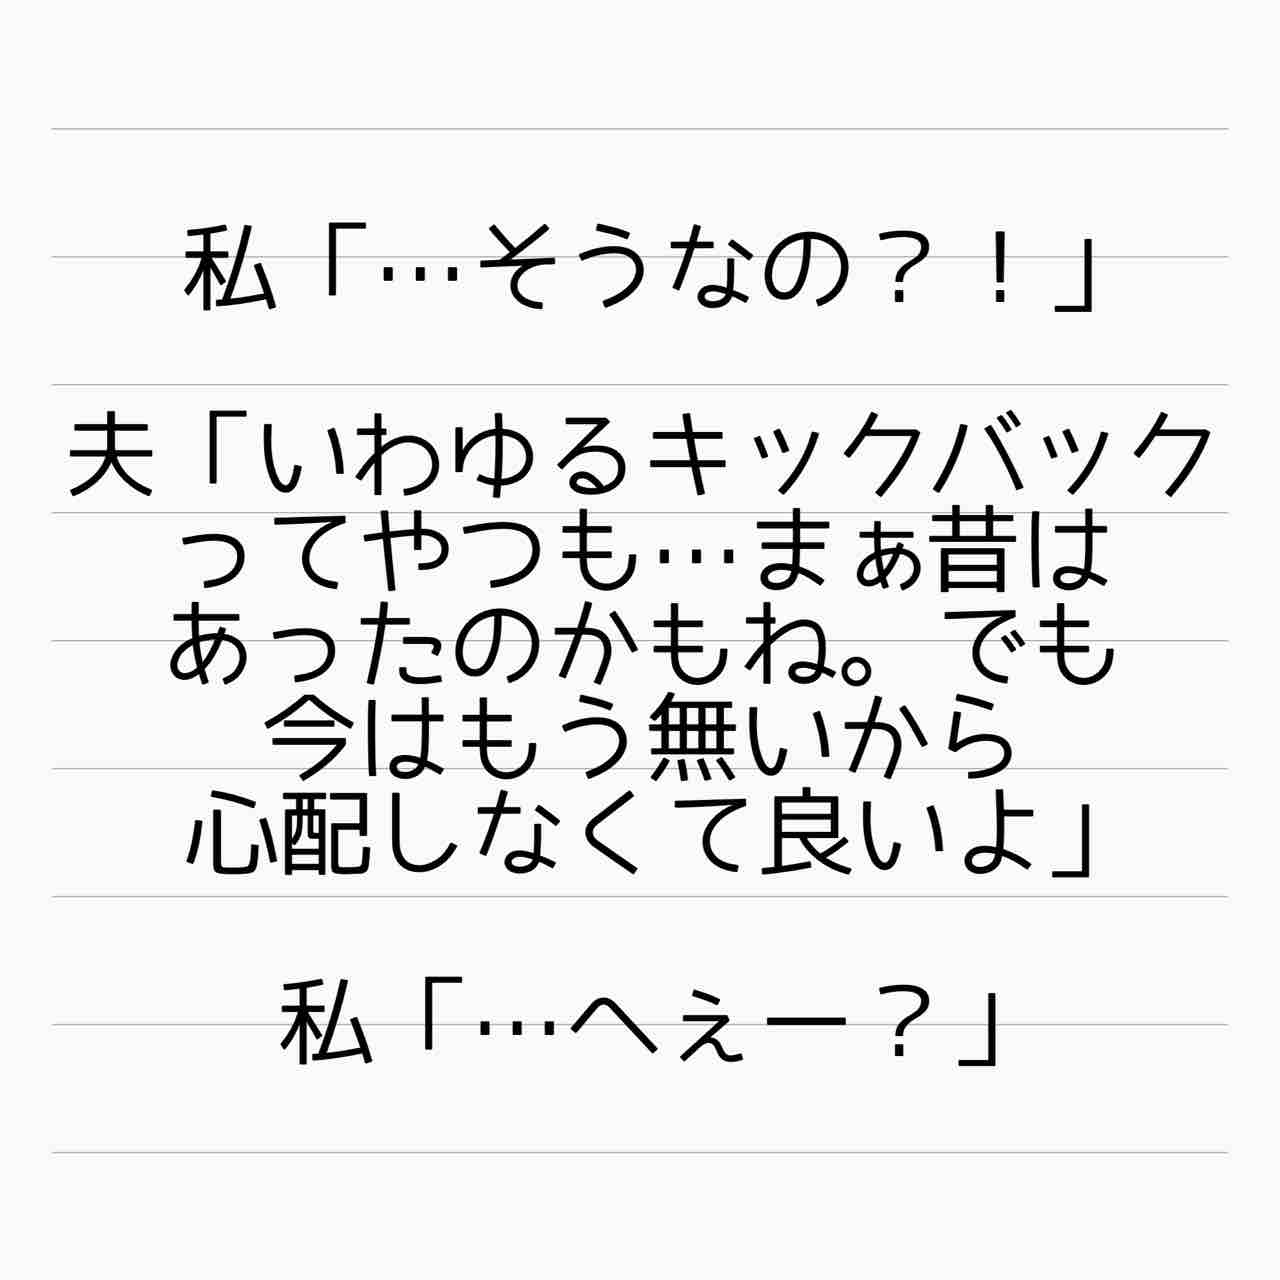 私「…そうなの？！」
夫「いわゆるキックバック
ってやつも…まぁ昔は
あったのかもね。でも
今はもう無いから
心配しなくて良いよ」
私「…へぇー？」